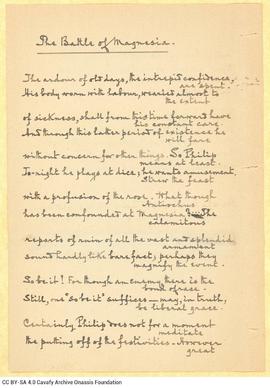 The Battle of Magnesia.
The ardour of old days, the intrepid confidence,
are spent.
His body worn with labour, wearied almost to
the extent
of sickness, shall from his time forward have
his constant care.
And through this later period of existence he
will fare
without concern for other things. So Philip
means at least.
To-night he plays at dice; he wants amusement.
Strew the feast
with a profusion of the rose. What though
Antiochus
has been confounded at Magnesia. The
calamitous
reports of ruin of all the vast and splendid
armament
sound hardly like bare fact; perhaps they
magnify the event.
So be it! For though an enemy there is the
bond of race.
Still, one "so be it" suffices — may, in truth,
be liberal grace.
Certainly Philip does not for a moment
meditate
the putting off of the festivities. However
great
CC BY-SA 4.0 Cavafy Archive Onassis Foundation